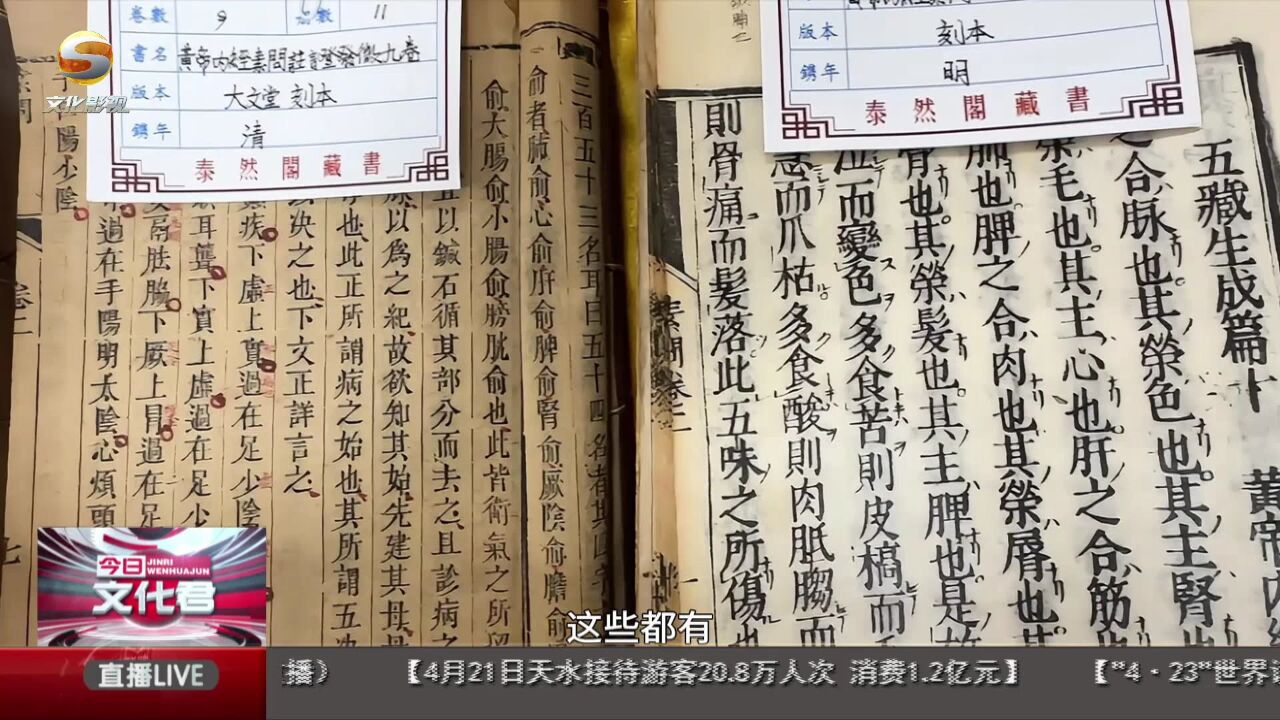 卷數 9 函數 11
書名 黃帝內经素問註證發微九卷
版本 大文堂 刻本
鐫年 清
泰然閣藏書
版本 刻本
鐫年 明
泰然閣藏書
文化影视
五藏生成篇十
黃帝內
之合脉也其榮色也其主腎也
榮毛也其主心也肝之合筋也
肺也脾之合肉也其榮唇也其
骨也其榮髮也其主脾也是故
泣而變色多食苦則皮槁而
急而爪枯多食酸則肉胝䐢而
則骨痛而髮落此五味之所傷也
素問卷二
三百五十三名耳曰五十四名者其
俞者肺俞心俞肝俞脾俞腎俞厥陰俞膽俞
俞大腸俞小腸俞膀胱俞也此皆衛氣之所留
且以鍼石循其部分而去之且診病之
以為之紀故欲知其始先建其母母
也此正所謂病之始也其所謂五决
以决之也下文正詳言之
疾下虛上實過在足少陰
耳聾下實上虛過在足少
胠脇下厥上冒過在足
過在手陽明太陰心煩頭
陽少陰
卷二
七
这些都有
今日
JINRI
WENHUAJUN
文化君
直播LIVE
播》 【4月21日天水接待游客20.8万人次 消费1.2亿元】 【“4·23”世界